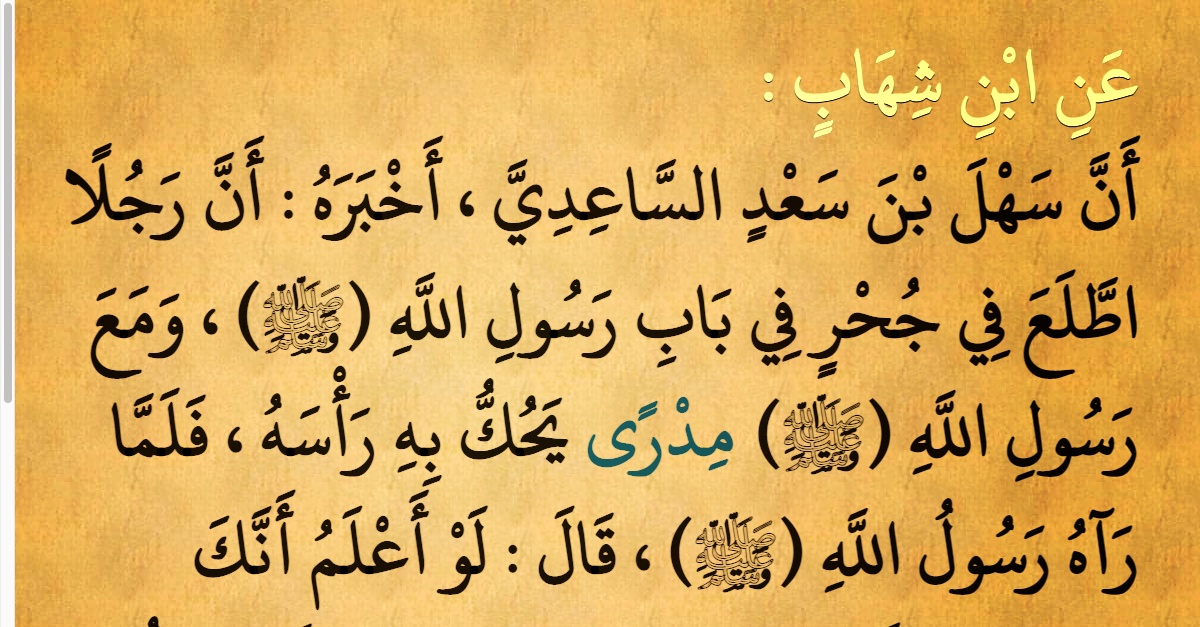 عَنِ ابْنِ شِهَابٍ :
أَنَّ سَهْلَ بْنَ سَعْدٍ السَّاعِدِيَّ ، أَخْبَرَهُ : أَنَّ رَجُلًا
اطَّلَعَ فِي جُحْرٍ فِي بَابِ رَسُولِ اللَّهِ (ﷺ) ، وَمَعَ
رَسُولِ اللَّهِ (ﷺ) مِدْرًى يَحُكُّ بِهِ رَأْسَهُ ، فَلَمَّا
رَآهُ رَسُولُ اللَّهِ (ﷺ) ، قَالَ : لَوْ أَعْلَمُ أَنَّكَ